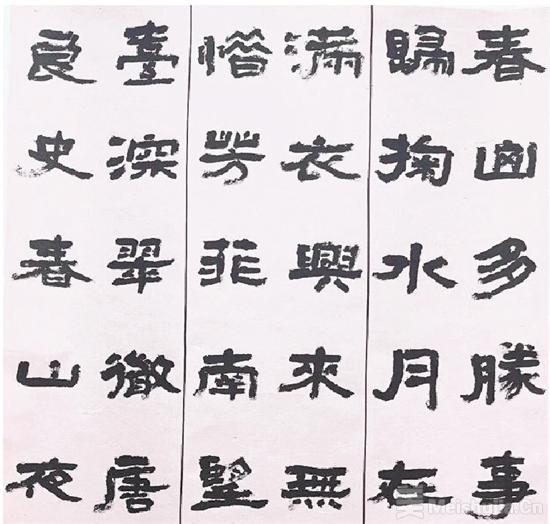 春山多勝事
歸掬水月在
滿衣興來無
惜芳菲南望
臺深翠微唐
良史春山夜